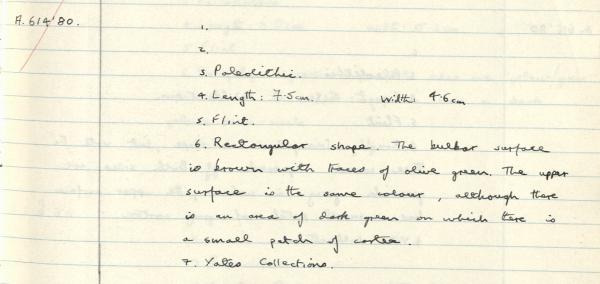 A.614'80.
1.
2.
3. Paleolithic.
4. Length: 7.5cm. Width: 4.6cm
5. Flint.
6. Rectangular shape. The bulbar surface
is brown with traces of olive green. The upper
surface is the same colour, although there
is an area of dark green on which there is
a small patch of cortex.
7. Yates Collections.